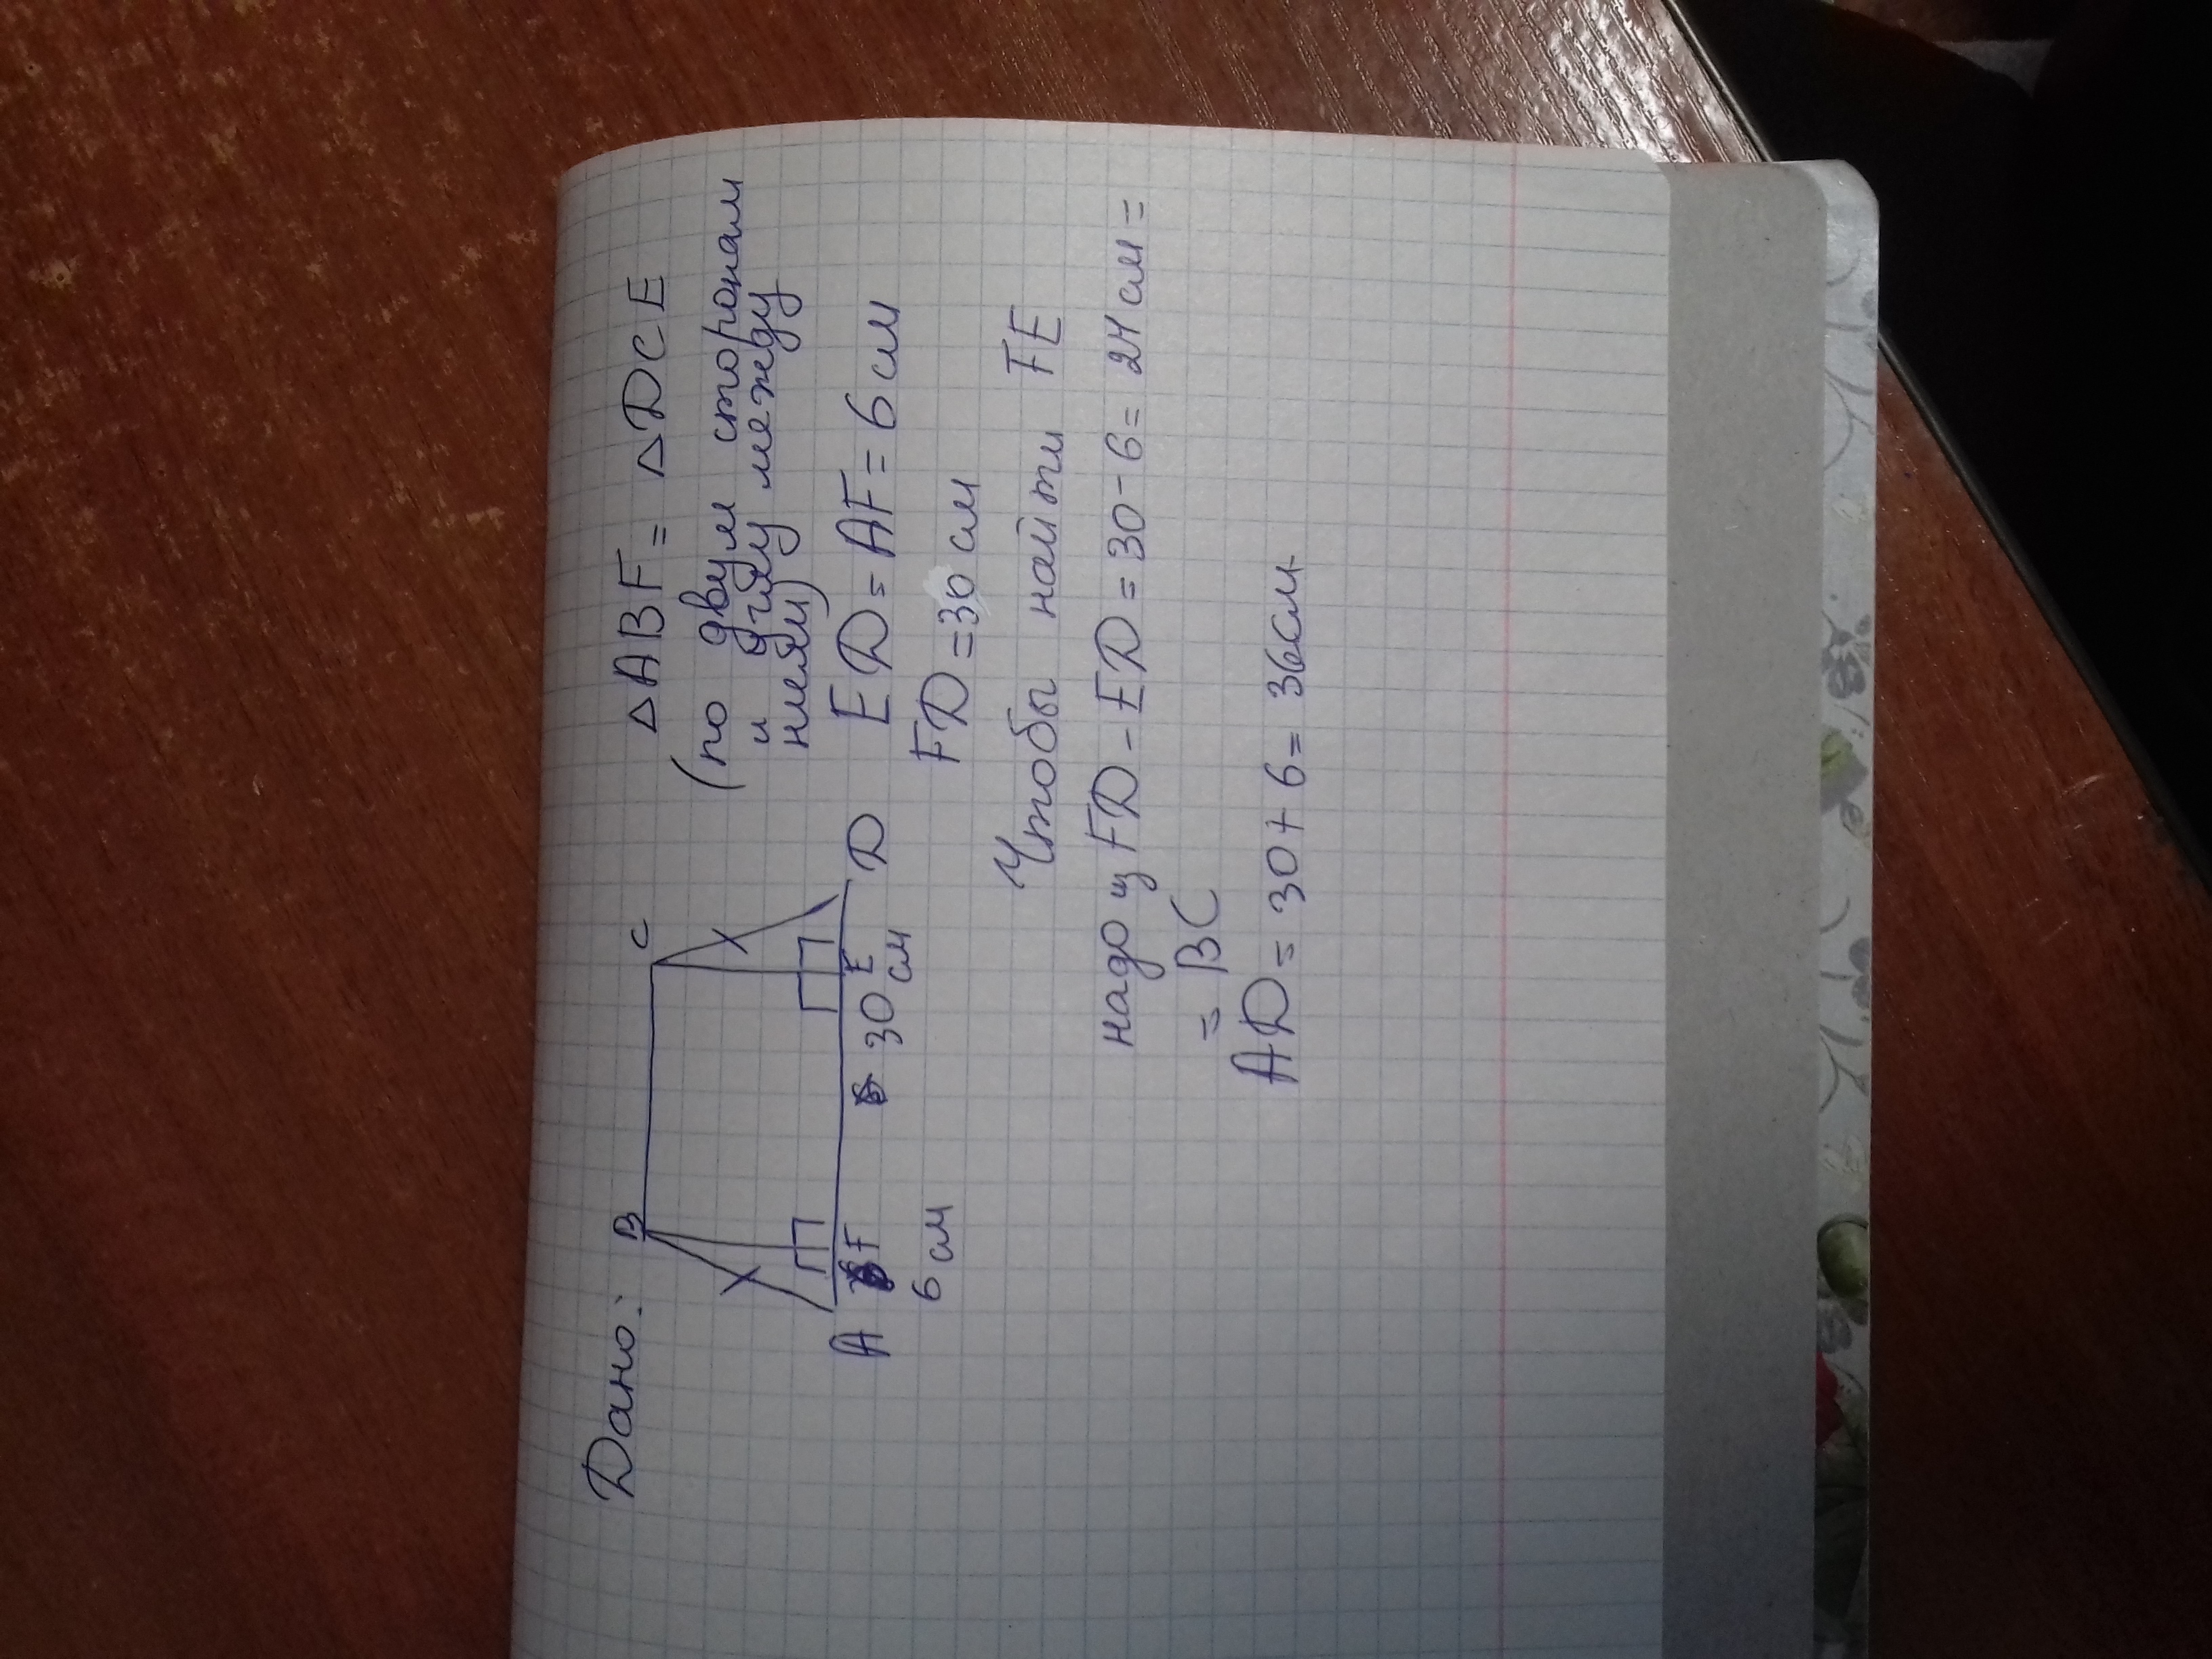 Дано:
B C
A F E D
6 см
30 см
△ABF = △DCE
(по двум сторонам
и углу между
ними)
ED = AF = 6 см
FD = 30 см
Чтобы найти FE
надо из FD - ED = 30 - 6 = 24 см =
= BC
AD = 30 + 6 = 36 см